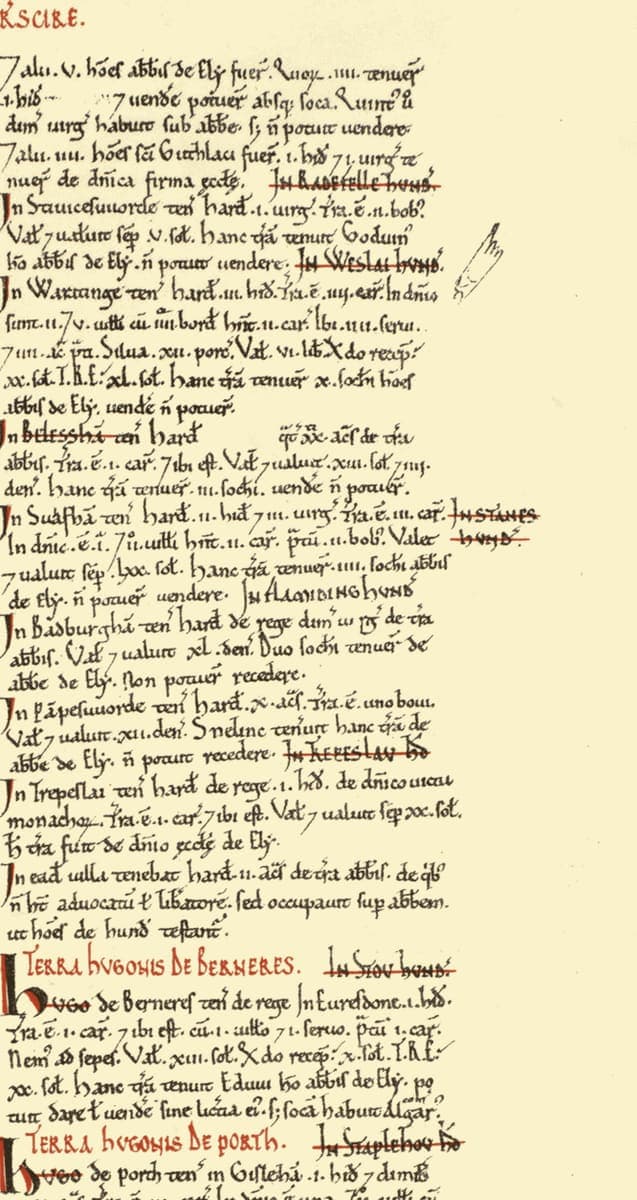 RSCIRE.
7 alii .v. hões abbis de Ely fuer̃. Quoꝝ .iiii. tenuer̃
.i. hid̃ 7 uende potuer̃ absq; soca. Quint⁹ ũ
dim̃ uirg̃ habuit sub abbe. s; ñ potuit uendere.
7 alii .iiii. hões sc̃i Guthlaci fuer̃ .i. hid̃ 7 .i. uirg̃ te
nuer̃ de dñica firma ęccłę. IN RADEFELLE HUND̃.
In Stiuicesuuorde teñ hard̃ .i. uirg̃. Tr̃a.ẽ.ii. bob⁹.
Val̃ 7 ualuit sẽp .v. sol̃. hanc tr̃a tenuit Goduin⁹
hõ abbis de Ely. ñ potuit uendere. IN WESLAI HUND̃.
In Waratinge teñ hard̃ .iii. hid̃. Tr̃a.ẽ.iiii. car̃. In dñio
sunt .ii. 7 .v. uiłłi cũ .iiii. bord̃ hñt .ii. car̃. Ibi .iiii. serui.
7 iiii. ac̃ p̃ti. Silua .xii. porc̃. Val̃ .vi. lib̃. Qdo recep̃.
xx. sol̃. T.R.E. xl. sol̃. hanc tr̃a tenuer̃ .x. sochi hões
abbis de Ely. uende ñ potuer̃.
In Belesshã teñ hard̃ q̃t xx. ac̃s de tr̃a
abbis. Tr̃a.ẽ.i. car̃. 7 ibi est. Val̃ 7 ualuit .xiii. sol̃ 7 iiii.
deñ. hanc tr̃a tenuer̃ .iii. sochi. uende ñ potuer̃.
In Suafhã teñ hard̃ .ii. hid̃ 7 iii. uirg̃. Tr̃a.ẽ.iii. car̃. IN STANES
In dñio.ẽ.i. 7 .ii. uiłłi hñt .ii. car̃. p̃tũ .ii. bob⁹. Valet HUND̃.
7 ualuit sẽp .lxx. sol̃. hanc tr̃a tenuer̃ .iiii. sochi abbis
de Ely. ñ potuer̃ uendere. IN FLAMIDING HUND̃
In Badburghã teñ hard̃ de rege dim̃ uirg̃ de tr̃a
abbis. Val̃ 7 ualuit .xl. deñ. Duo sochi tenuer̃ de
abbe de Ely. Non potuer̃ recedere.
In Pãpesuuorde teñ hard̃ .x. ac̃s. Tr̃a.ẽ. uno boui.
Val̃ 7 ualuit .xii. deñ. Snelinc tenuit hanc tr̃a de
abbe de Ely. ñ potuit recedere. IN TREPESLAU HD̃
In Trepeslai teñ hard̃ de rege .i. hid̃. de dñico uictu
monachoꝝ. Tr̃a.ẽ.i. car̃. 7 ibi est. Val̃ 7 ualuit sẽp xx. sol̃.
H̃ tr̃a fuit de dñio ęccłę de Ely.
In ead̃ uilla tenebat hard̃ .ii. ac̃s de tr̃a abbis. de qib⁹
ñ ht̃ aduocatũ ł libatorẽ. sed occupauit sup abbem.
ut hões de hund̃ testant̃.
TERRA HUGONIS DE BERNERES. IN STOU HUND̃.
HUGO de Berneres teñ de rege In Euresdone .i. hid̃.
Tr̃a.ẽ.i. car̃. 7 ibi est. cũ .i. uiłło 7 .i. seruo. p̃tũ .i. car̃.
Nem⁹ ad sepes. Val̃ .xiii. sol̃. Qdo recep̃ .x. sol̃. T.R.E.
xx. sol̃. hanc tr̃a tenuit Eduui hõ abbis de Ely. po
tuit dare ł uende sine licẽtia ei⁹. s; socã habuit Algar⁹ com̃.
TERRA HUGONIS DE PORTH. IN STAPLEHOU HD̃
HUGO de porth teñ in Gislehã .i. hid̃ 7 dimid̃